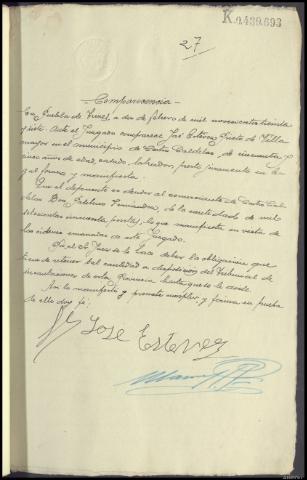 K.9,439,693
27
Comparecencia
En Puebla de Trives, a dos de febrero de mil novecientos treinta
y siete. Ante el Juzgado comparece José Estévez Prieto de Villa
mayor en el municipio de Castro Caldelas, de cincuenta y
cinco años de edad, casado, labrador, presta juramento en le
gal forma y manifiesta.
Que el deponente es deudor al comerciante de Castro Cal
delas Don Esteban de la cantidad de mil
doscientas cincuenta pesetas, lo que manifiesta en vista de
las órdenes emanadas de este Juzgado.
Por el Sr. Juez se le hace saber la obligación que
tiene de retener tal cantidad a disposición del Tribunal de
incautaciones de esta Provincia hasta que se le
Así lo manifestó y prometió cumplir, y firma se prueba
de ello doy fé:
José Estevez